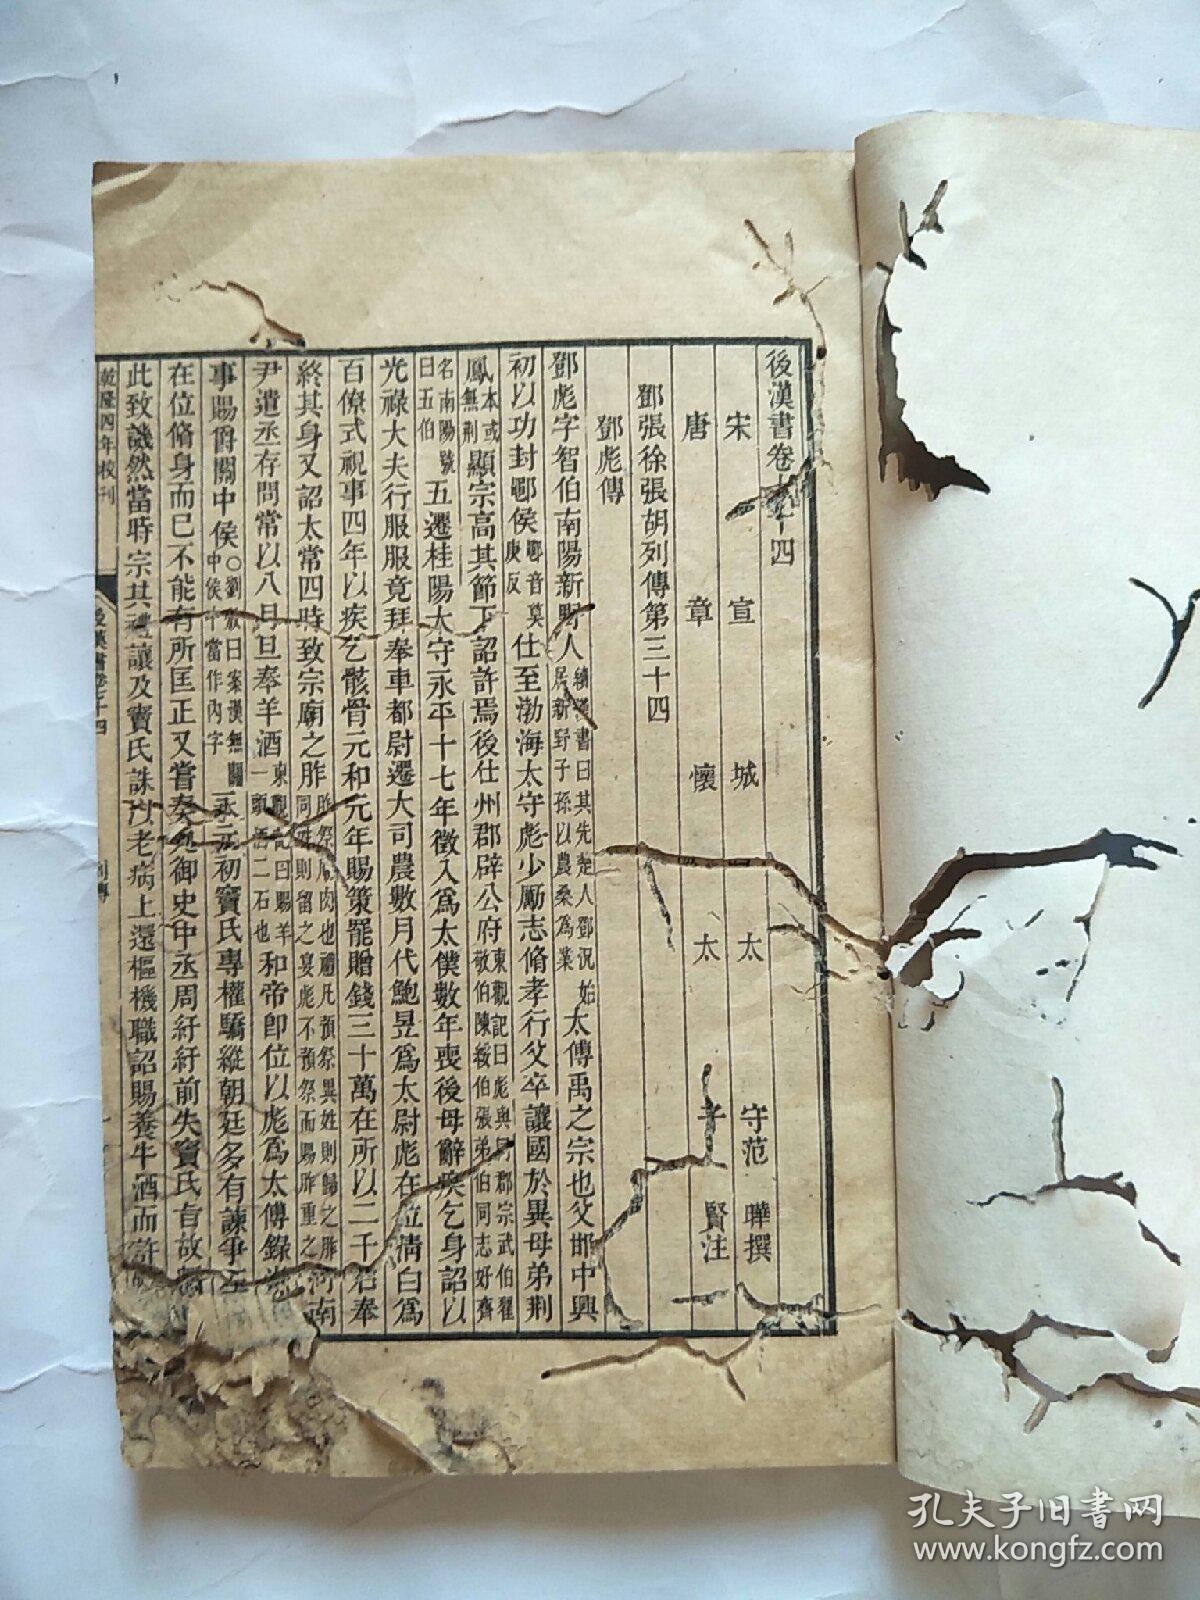 後漢書卷七十四
宋宣城太守范曄撰
唐章懷太子賢注
鄧張徐張胡列傳第三十四
鄧彪傳
鄧彪字智伯南陽新野人續漢書曰其先楚人鄧況始居新野子孫以農桑為業太傅禹之宗也父邯中興
初以功封鄳侯鄳音莫庚反仕至渤海太守彪少勵志脩孝行父卒讓國於異母弟荆
鳳本或無荆顯宗高其節下詔許焉後仕州郡辟公府東觀記曰彪與同郡宗武伯翟敬伯陳綏伯張弟伯同志好齊
名南陽號曰五伯五遷桂陽太守永平十七年徵入為太僕數年喪後母辭疾乞身詔以
光祿大夫行服服竟拜奉車都尉遷大司農數月代鮑昱為太尉彪在位清白為
百僚式視事四年以疾乞骸骨元和元年賜策罷贈錢三十萬在所以二千石奉
終其身又詔太常四時致宗廟之胙胙祭廟肉也禮凡預祭異姓則歸之胙同姓則留之宴彪不預祭而賜胙重之河南
尹遣丞存問常以八月旦奉羊酒東觀記曰賜羊一頭酒二石也和帝卽位以彪為太傅錄尚
事賜爵關中侯○劉攽曰案漢無關中侯中當作內字永元初竇氏專權驕縱朝廷多有諫爭
在位脩身而已不能有所匡正又嘗奏免御史中丞周紆紆前失竇氏旨故
此致譏然當時宗其禮讓及竇氏誅以老病上還樞機職詔賜養牛酒而許
乾隆四年校刊
後漢書卷七十四
列傳
一
孔夫子旧书网
www.kongfz.com